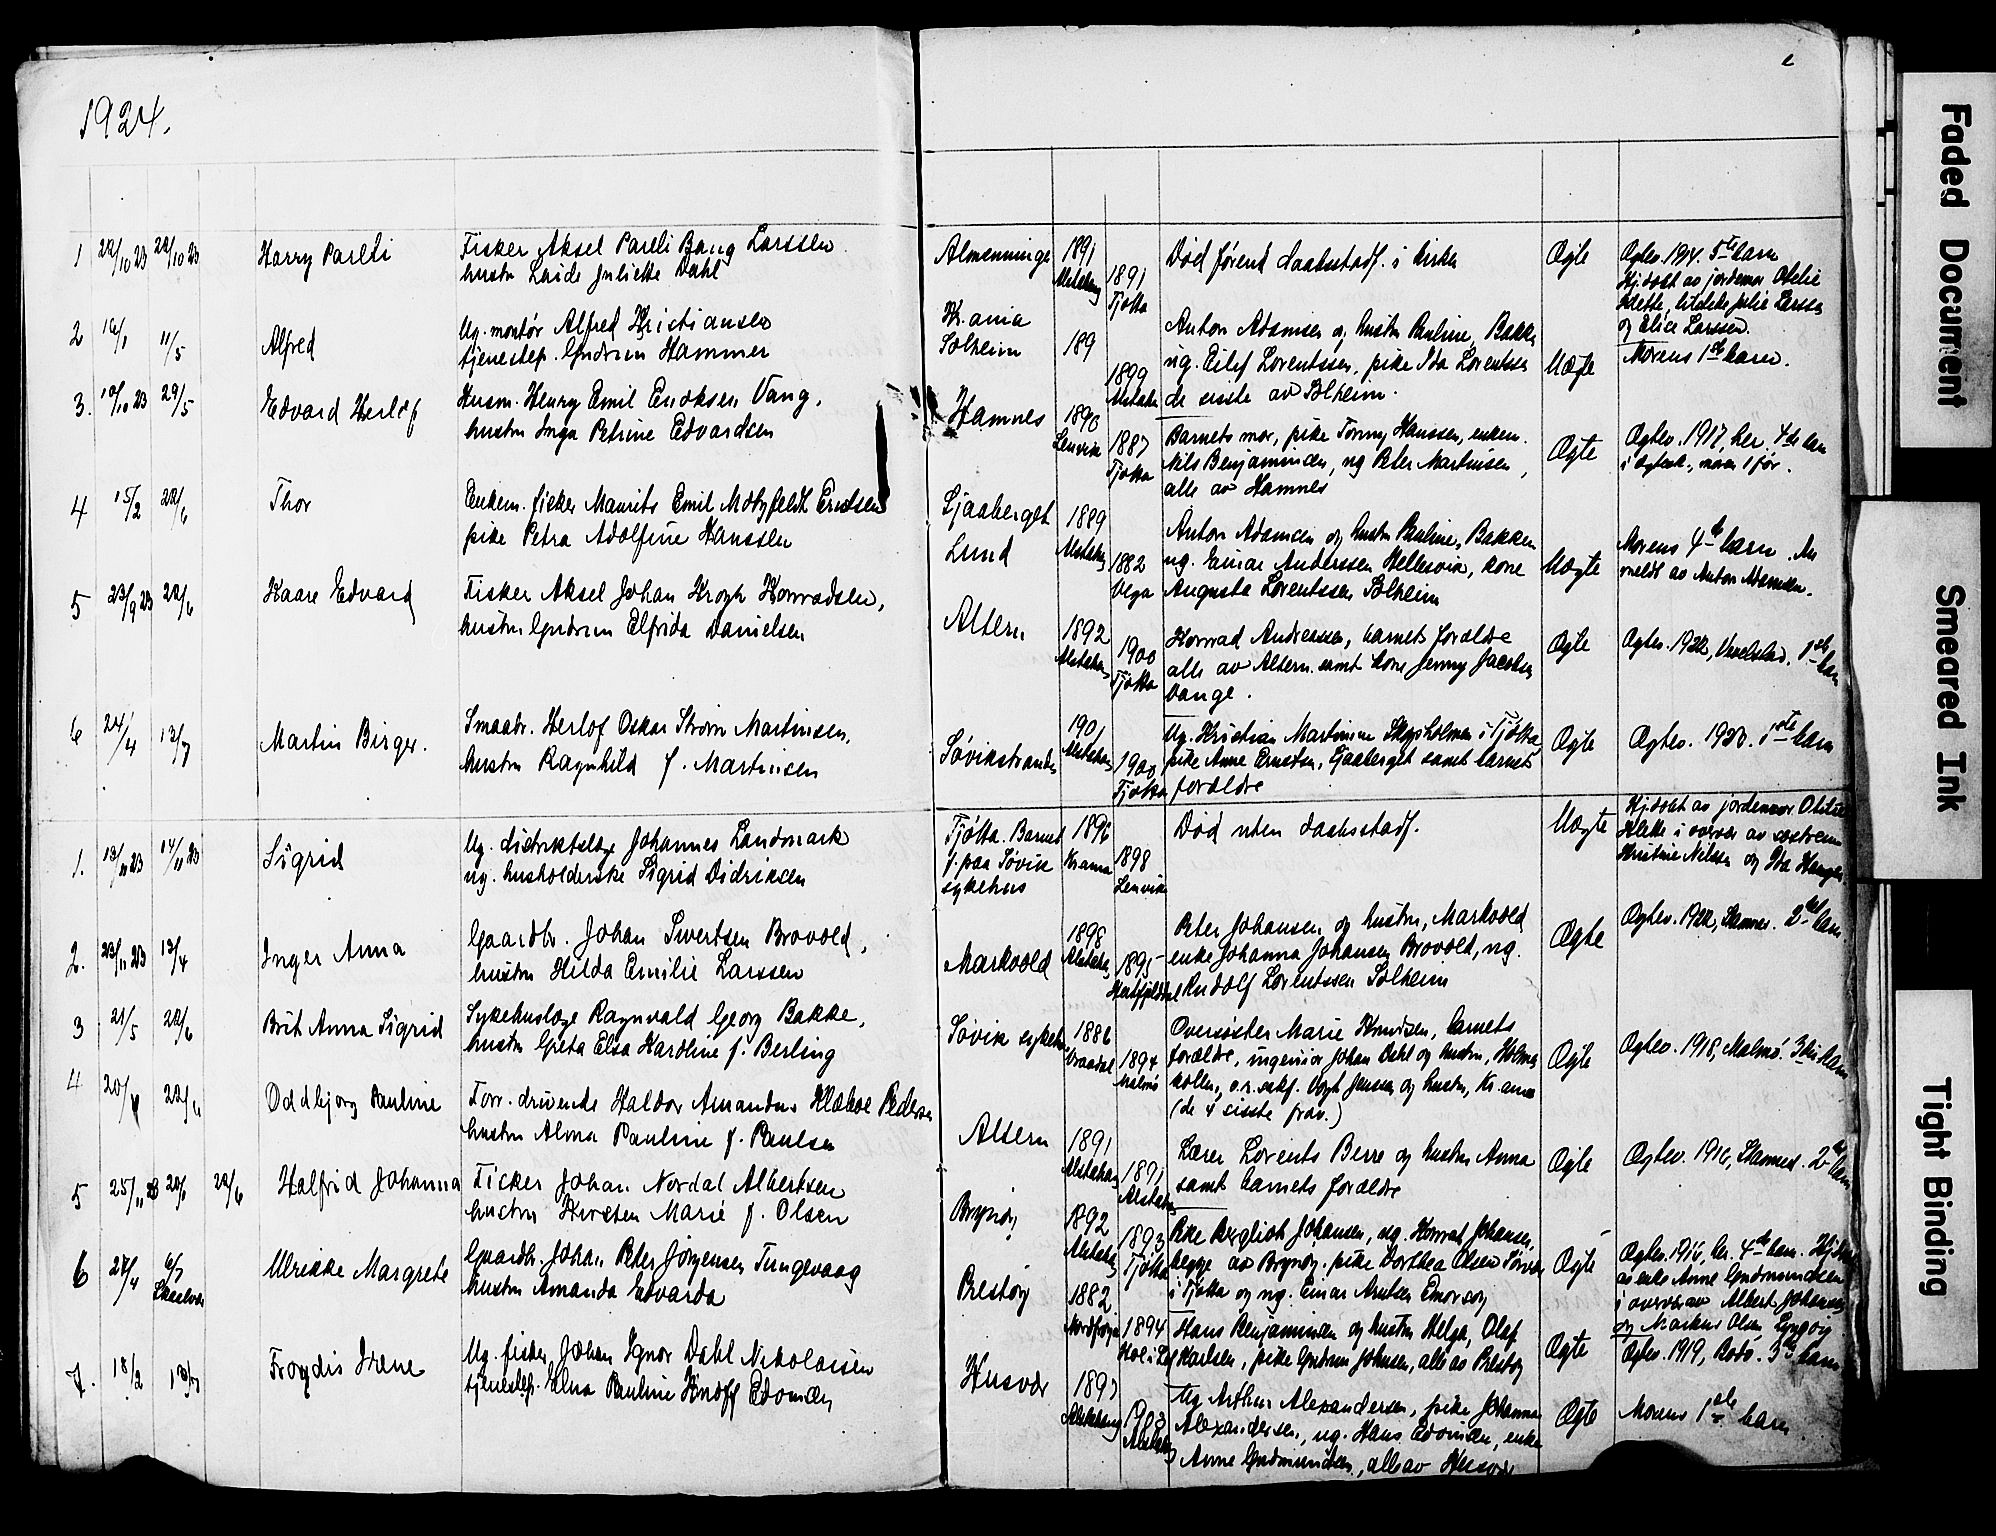 1924.
1 22/10 23 22/10 23 Harry Pareli Fisker Aksel Pareli Bang Larssen
hustru Laide Juliette Dahl
Almenninge 1891 1891 Tjøtta Død førend daabsstadf. i kirke Ægte Ægtev. 1914. 5te barn
Hj.døbt av jordemor Otelie
og Elice Larssen.
2 16/1 11/5 Alfred Ug. montør Alfred Kristiansen
tjenestep. Gudrun Hammer
Kr.ania
Solheim 189 1899
Anton Adamsen og hustru Pauline, Bakken
ug. Eilef Lorentssen, pike Ida Lorentssen
de siste av Solheim.
Uægte Morens 1ste barn.
3. 10/10 23 29/5 Edvard Herlof Husm. Henry Emil Eriksen Vang,
hustru Inga Petrine Edvardsen
Hamnes 1890 Lenvik 1887 Tjøtta
Barnets mor, pike Tommy Hanssen, enkem.
Nils Benjaminsen, ug Peter Martinsen,
alle av Hamnes
Ægte Ægtev. 1917, her. 4de barn
i ægtesk., moren 1 før.
4 15/2 22/6 Thor Enkem. fisker Maurits Emil Erntsen
pike Petra Adolfine Hanssen
Gjaaberget
Lund 1889 1882 Vega
Anton Adamsen og hustru Pauline, Bakken
ug. Einar Anderssen Hellesvik, kone
Augusta Lorentssen Solheim
Uægte Morens 4de barn. An
meldt av Anton Adamsen.
5 23/9 23 22/6 Kaare Edvard Fisker Aksel Johan Krogh Konradsen,
hustru Gudrun Elfrida Danielsen
Altern 1892 1900 Tjøtta
Konrad Andreassen, barnets forældre
alle av Altern samt kone Jenny Jacobsen
Vange.
Ægte Ægtev. 1922, Vevelstad. 1ste barn
6 24/4 13/7 Martin Birger. Smaabr. Herlof Oskar Strøm Martinsen,
hustru Ragnhild f. Martinsen
Søvikstranden 1901 1900 Tjøtta
Ug. Kristian Martinsen Skogsholmen i Tjøtta
pike Anne Erntsen, Gjaaberget samt barnets
forældre
Ægte Ægtev. 1923. 1ste barn
1. 13/11 23 14/11 23 Sigrid Ug. distriktslæge Johannes Landmark
ug. husholderske Sigrid Didriksen
Tjøtta. Barnet
f. paa Søvik
sykehus 1896 Kr.ania 1898 Lenvik
Død uten daabsstadf.
Uægte Hj.døbt av jordemor Otelie
Klette i overvær av søstrene
Kristine Nilsen og Ida
2. 23/11 23 13/4 Inger Anna Gaardbr. Johan Sivertsen Brovold,
hustru Hilda Emilie Larssen
Markvold 1898 1895 Hatfjelddal
Peter Johansen og hustru, Markvold
enke Johanna Johansen Brovold, ug.
Rudolf Lorentssen Solheim
Ægte Ægtev. 1922, Stamnes. 2det barn.
3 21/5 22/6 Brit Anna Sigrid Sykehuslæge Ragnvald Georg Bakke,
hustru Greta Elsa Karoline f. Berling
Søvik sykeh. 1886 1894 Malmø
Oversøster Marie Knudsen, barnets
forældre, ingeniør Johan Dahl og hustru, Holmen
kollen, o.r.sakf. Vogt Jenssen og hustru, Kr.ania
(de 4 sisste frav.)
Ægte Ægtev. 1918, Malmø. 3die barn
4 20/4 22/6 Oddbjørg Pauline Forr. drivende Haldor Amandus Klæboe Pedersen
hustru Alma Pauline f. Paulsen
Altern 1891 1891
Lærer Lorents Berre og hustru Anna
samt barnets forældre
Ægte Ægtev. 1916, Stamnes. 2det barn
5 25/11 23 20/1 22/6 Halfrid Johanna Fisker Johan Nordal Albertsen
hustru Kirsten Marie f. Olsen
Brynøy 1892 1893 Tjøtta
Pike Bergliot Johansen, ug. Konrad Johansen,
begge av Brynøy. pike Dorthea Olsen Torvær
i Tjøtta og ug. Einar
Ægte Ægtev. 1914, her. 4de barn. Hj.døbt
av enke Anne Gudmundsen
i overvær av Albert Johansen
og Markus Olsen
6 27/4 6/7 Ulrikke Margrete Gaardbr. Johan Peter Jørgensen Tungevaag
hustru Amanda Edvarda
Prestøy 1882 1894
Hans Benjaminsen og hustru Helga, Olaf
Karlsen, pike Gudrun Johnsen, alle av Prestøy
Ægte Ægtev. 1919, Rødø. 3die barn
7. 18/2 13/7 Frøydis Irene Ug. fisker Johan Ignor Dahl Nikolaisen
tjenestep. Alma Pauline Knoff Edvinsen
Husvær 1897 1903
Ug Arthur Alexandersen, pike Johanna
Alexandersen, ug. Hans Edvinsen, enke
Anne Gudmundsen, alle av Husvær
Ægte Morens 1ste barn
Faded Document
Smeared Ink
Tight Binding